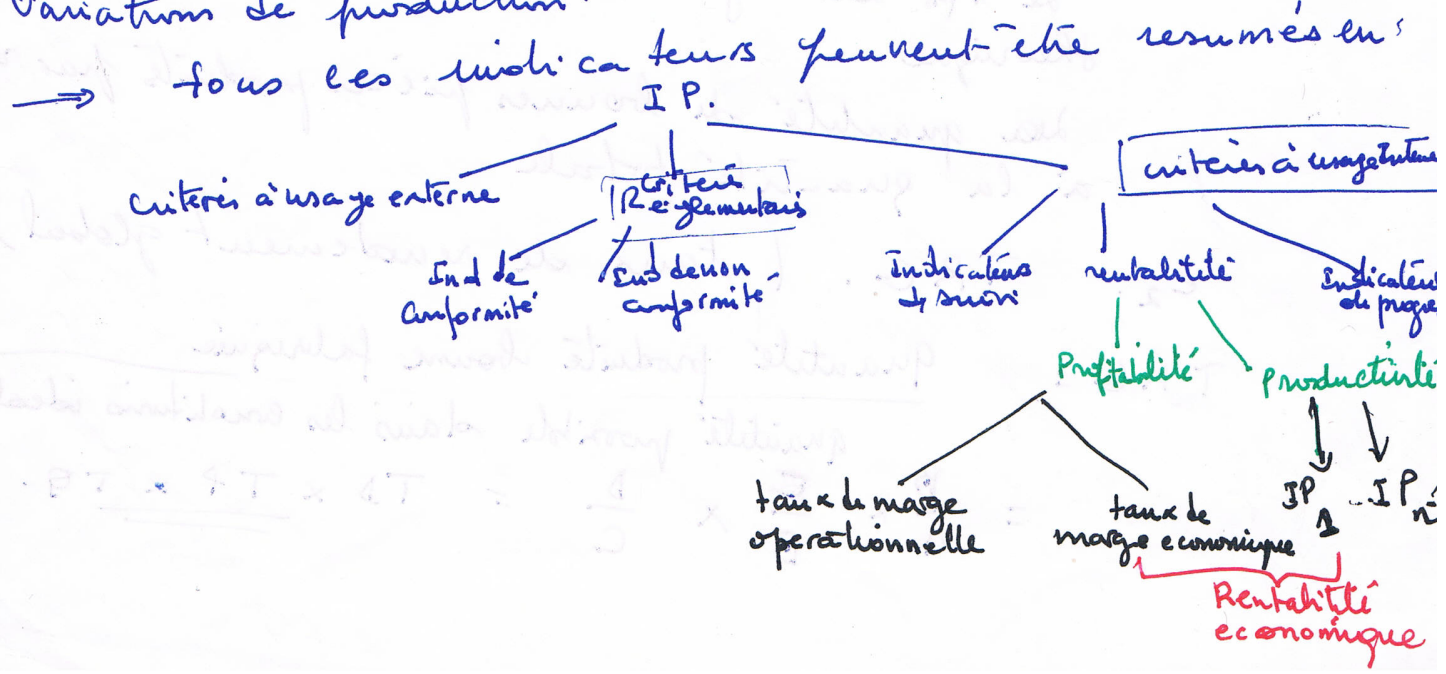 Variations de production
⟹ tous les indicateurs peuvent être resumés en:
I P.
critères à usage externe
critères
Réglementaires
critères à usage Interne
Ind de
conformité
Ind de non
conformité
Indicateurs
de suivi
rentabilité
Indicateur
de progr
Profitabilité
Productivité
taux de marge
opérationnelle
taux de
marge economique
IP 1 ... IP n
Rentabilité
economique